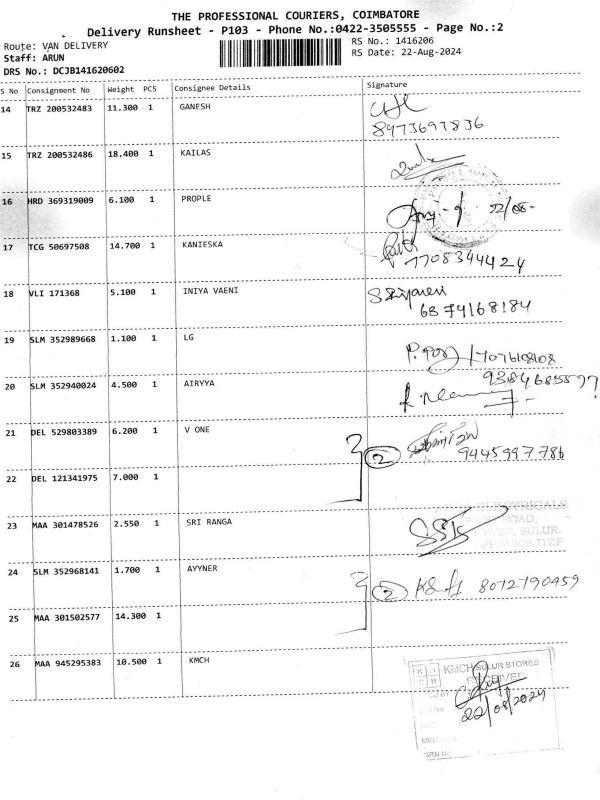 THE PROFESSIONAL COURIERS, COIMBATORE
Delivery Runsheet - P103 - Phone No.:0422-3505555 - Page No.:2
Route: VAN DELIVERY
RS No.: 1416206
Staff: ARUN
RS Date: 22-Aug-2024
DRS No.: DCJB141620602
S No Consignment No Weight PCS Consignee Details Signature
14 TRZ 200532483 11.300 1 GANESH
8973697836
15 TRZ 200532486 18.400 1 KAILAS
16 HRD 369319009 6.100 1 PROPLE
22/08-
17 TCG 50697508 14.700 1 KANIESKA
7708344424
18 VLI 171368 5.100 1 INIYA VAENI
6874168184
19 SLM 352989668 1.100 1 LG
20 SLM 352940024 4.500 1 AIRYYA
21 DEL 529803389 6.200 1 V ONE
2
9445997786
22 DEL 121341975 7.000 1
23 MAA 301478526 2.550 1 SRI RANGA
ELECTRICALS
ROAD,
SULUR.
24 SLM 352968141 1.700 1 AYYNER
2 8072790459
25 MAA 301502577 14.300 1
26 MAA 945295383 10.500 1 KMCH
KMCH SULUR STORES
RECEIVED
22/08/2024